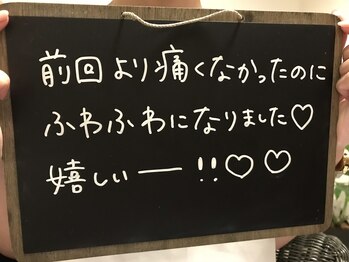 前回より痛くなかったのに
ふわふわになりました♡
嬉しいー!!♡♡